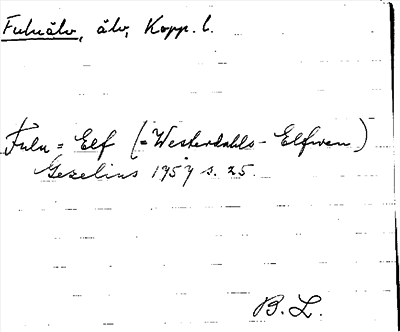 Fuluälv, älv, Kopp. l.
Fulu = Elf (= Westerdahls - Elfwen)
Gezelius 1757 s. 25.
B. L.